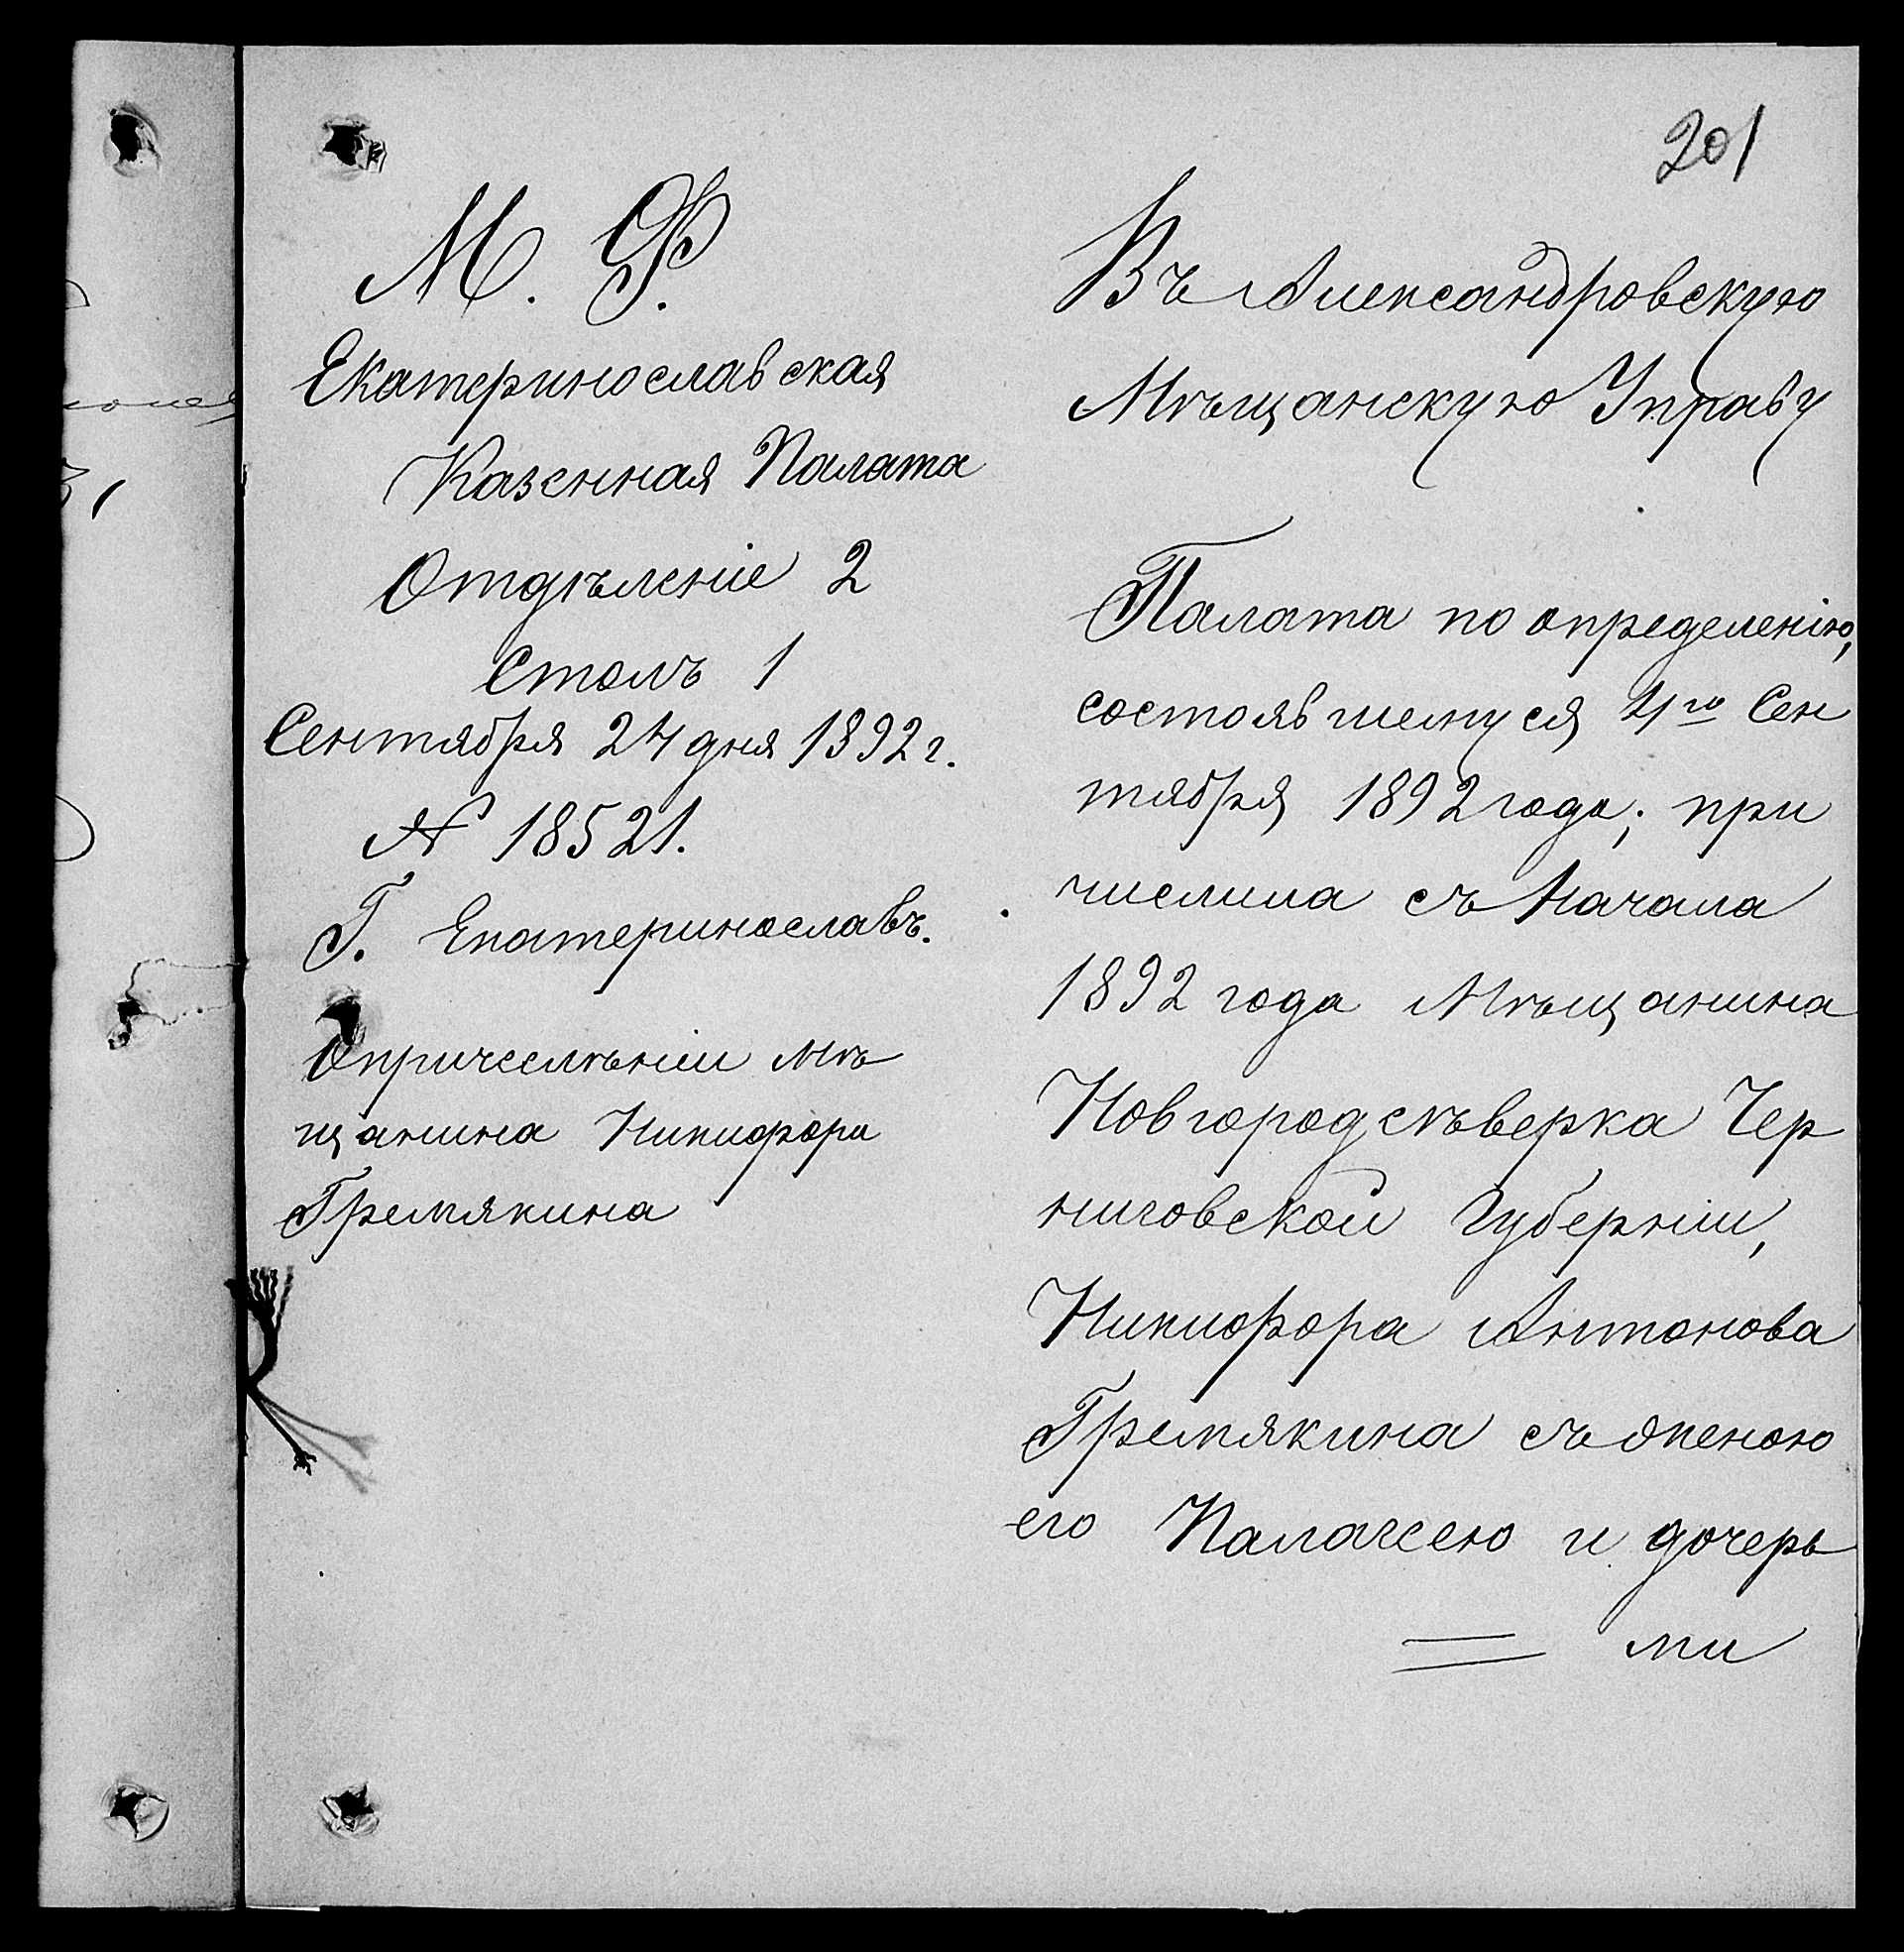 201
М. Ф.
Екатеринославская
Казенная Палата
Отдѣленіе 2
Столъ 1
Сентября 24 дня 1892 г.
№ 18521.
Г. Екатеринославъ.
О причислѣніи мѣ
щанина Никифора
Гремякина
Въ Александровскую
Мѣщанскую Управу
Палата по определенію,
состоявшемуся 4го Сен
тября 1892 года; при
числила съ Начала
1892 года Мѣщанина
Новгородсѣверка Чер
ниговской Губерніи,
Никифора Антонова
Гремякина съ женою
его Палагеею и дочерь
ми